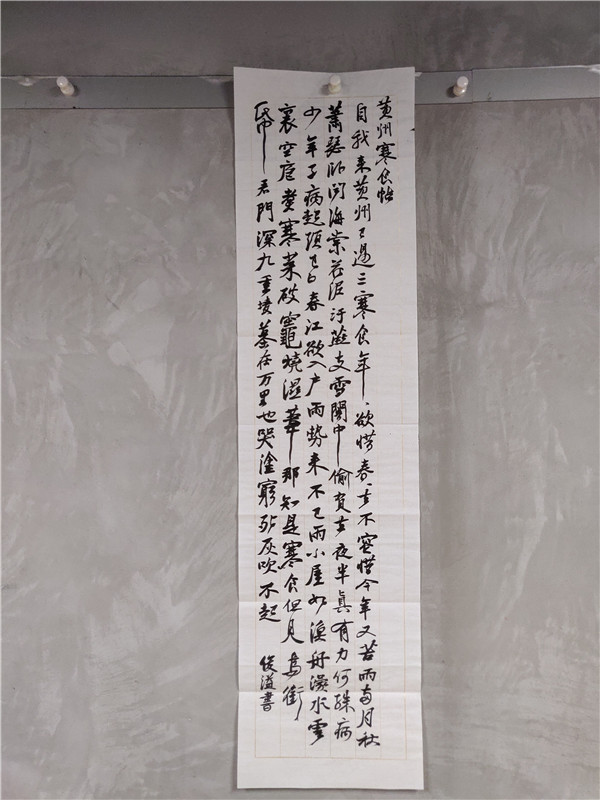 黄州寒食帖
自我来黄州已過三寒食年、欲惜春、去不容惜今年又苦雨两月秋
蕭瑟卧闻海棠花泥汙燕支雪闇中偷負去夜半真有力何殊病
少年子病起頭已白春江欲入户雨势来不已雨小屋如漁舟濛水雲
裏空庖煮寒菜破竈燒湿葦那知是寒食但見烏銜
帋君門深九重墳墓在万里也哭塗窮死灰吹不起 俊溢書